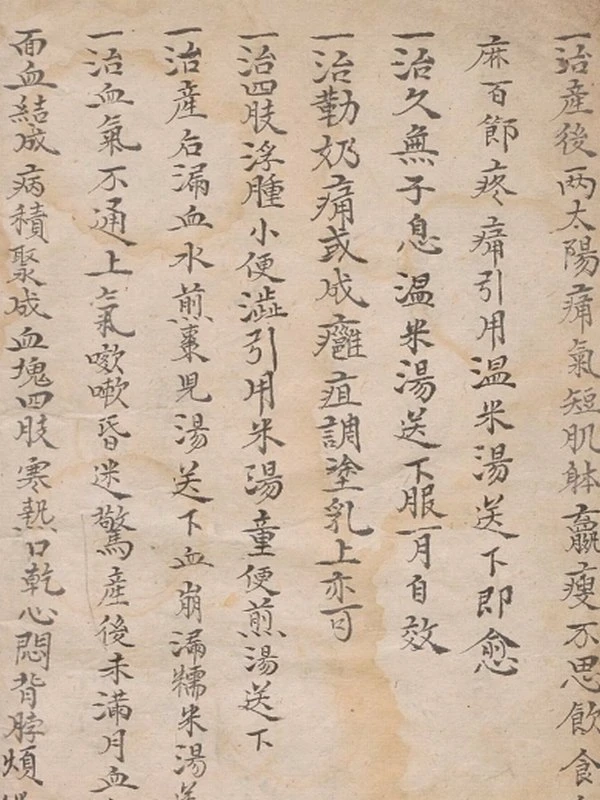 一治產後两太陽痛氣短肌躰羸瘦不思飲食
麻百節疼痛引用温米湯送下即愈
一治久無子息温米湯送下服一月自效
一治勒奶痛或成癰疽調塗乳上亦可
一治四肢浮腫小便澁引用米湯童便煎湯送下
一治產后漏血水煎棗児湯送下血崩漏糯米湯送
一治血氣不通上氣嗽嗽昏迷驚產後未滿月血
面血結成病積聚成血塊四肢寒熱口乾心悶背脖煩